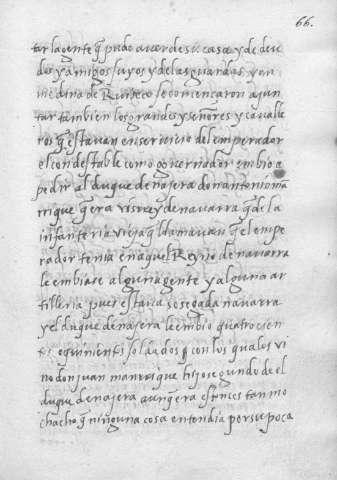 66.
tar la gente q̃ pudo aver de su casa y de deu
dos y amigos suyos y de las guardas y en
medina de Ruiseco se començaron a jun
tar tambien los grandes y señores y cavalle
ros q̃ estavan en servicio del emperador
el condestable como governador embio a
pedir al duque de najera don antonio mã
rrique q̃ era visrrey de navarra q̃ de la
infanteria vieja q̃ llamavan q̃ el empe
rador tenia en aquel Reyno de navarra
le embiase alguna gente y alguna ar
tilleria pues estava sosegada navarra
y el duque de najera le embio quatrocien
tos o quinientos soldados con los quales vi
no don juan manrrique hijo segundo de el
duque de najera aunq̃ era estonces tan mo
chacho q̃ ninguna cosa entendia por su poca